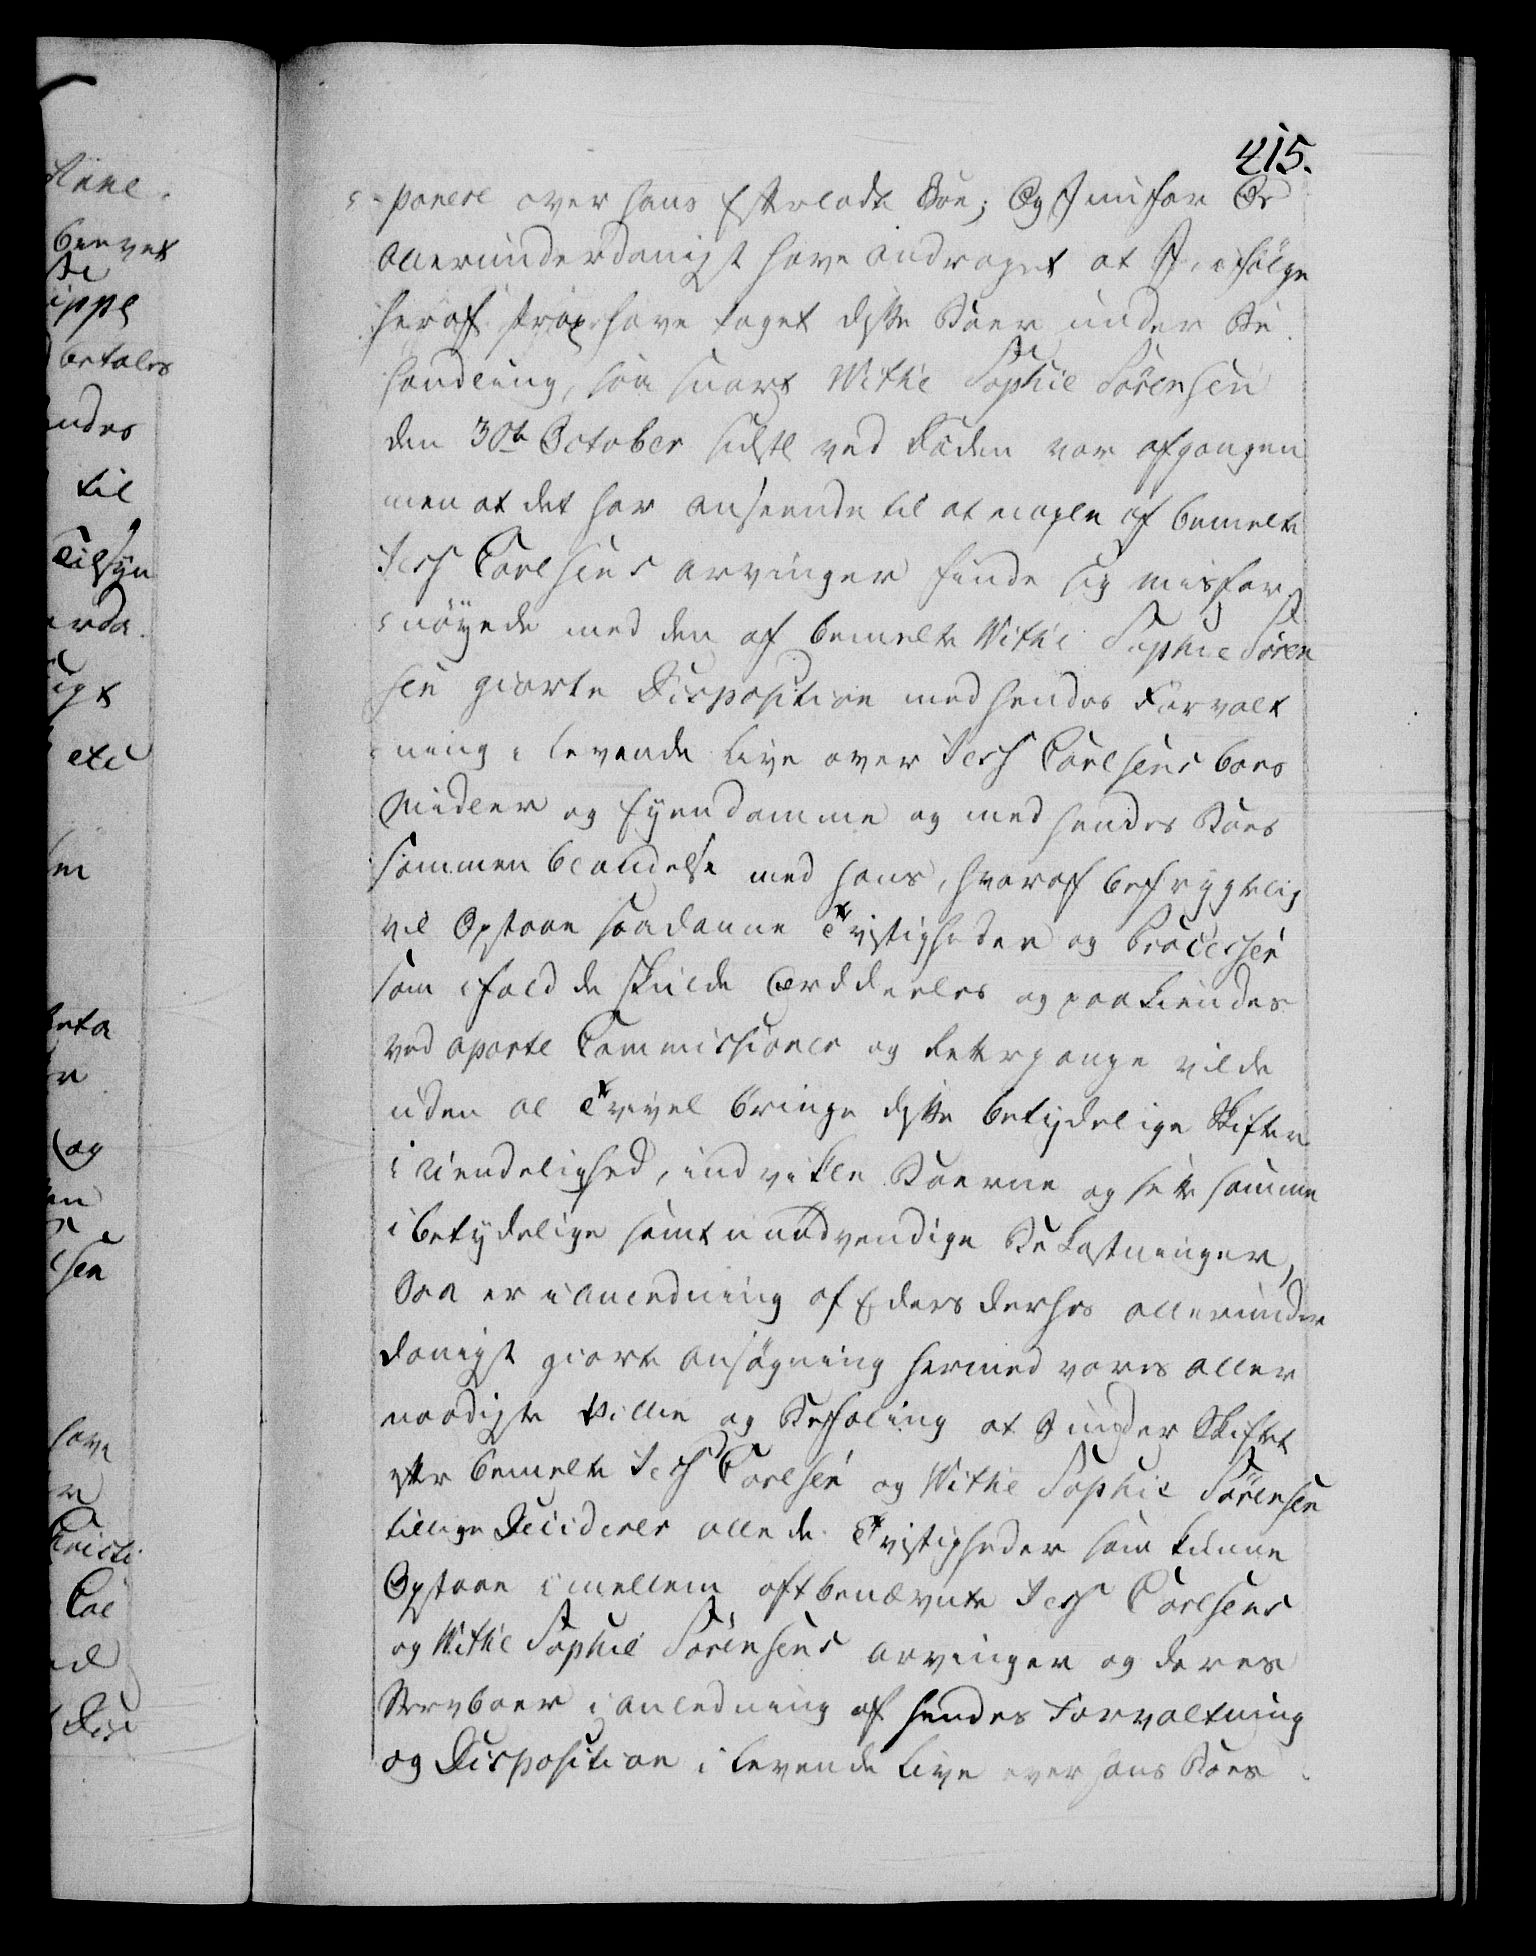 415.
ponere over hans Efterladte Boe; Og I nu for Os
allerunderdanigst have andraget at I, i følge
heraf strax have taget disse Boer under Be
handling, saa snart Withe Sophie Sörensen
den 30te October sidste ved Döden var afgangen
men at det har anseende til at nogle af bemelte
Jess Carlsens arvinger finde sig misfor
nöyede med den af bemelte Withe Sophie Sören
sen giorte Disposition med hendes Forvalt
ning i levende Live over Jess Carlsens boes
Midler og Eyendomme og med hendes Boes
sammenblandelse med hans, hvoraf befrygtelig
vil Opstaae saadanne Tvistigheder og Processer
som ifald de skulde  og paakiendes
ved aparte Commissioner og Rettergange vilde
uden al Tvivel bringe disse betydelige Skifter
i Uendelighed, indvikle Boerne og sætte samme
i betydelige samt unödvendige Bekostninger,
Saa er i Anledning af Eders derhos allerunder
danigst giorte Ansögning hermed vores aller
naadigste Villie og Befaling at I under Skiftet
efter bemelte Jess Carlsen og Withe Sophie Sörensen
tillige Deciderer alle de Tvistigheder som kunne
Opstaae imellem oftbenævnte Jess Carlsens
og Withe Sophie Sörensens arvinger og deres
Stervboer i anledning af hendes Forvaltning
og Disposition i levende Live over hans Boes